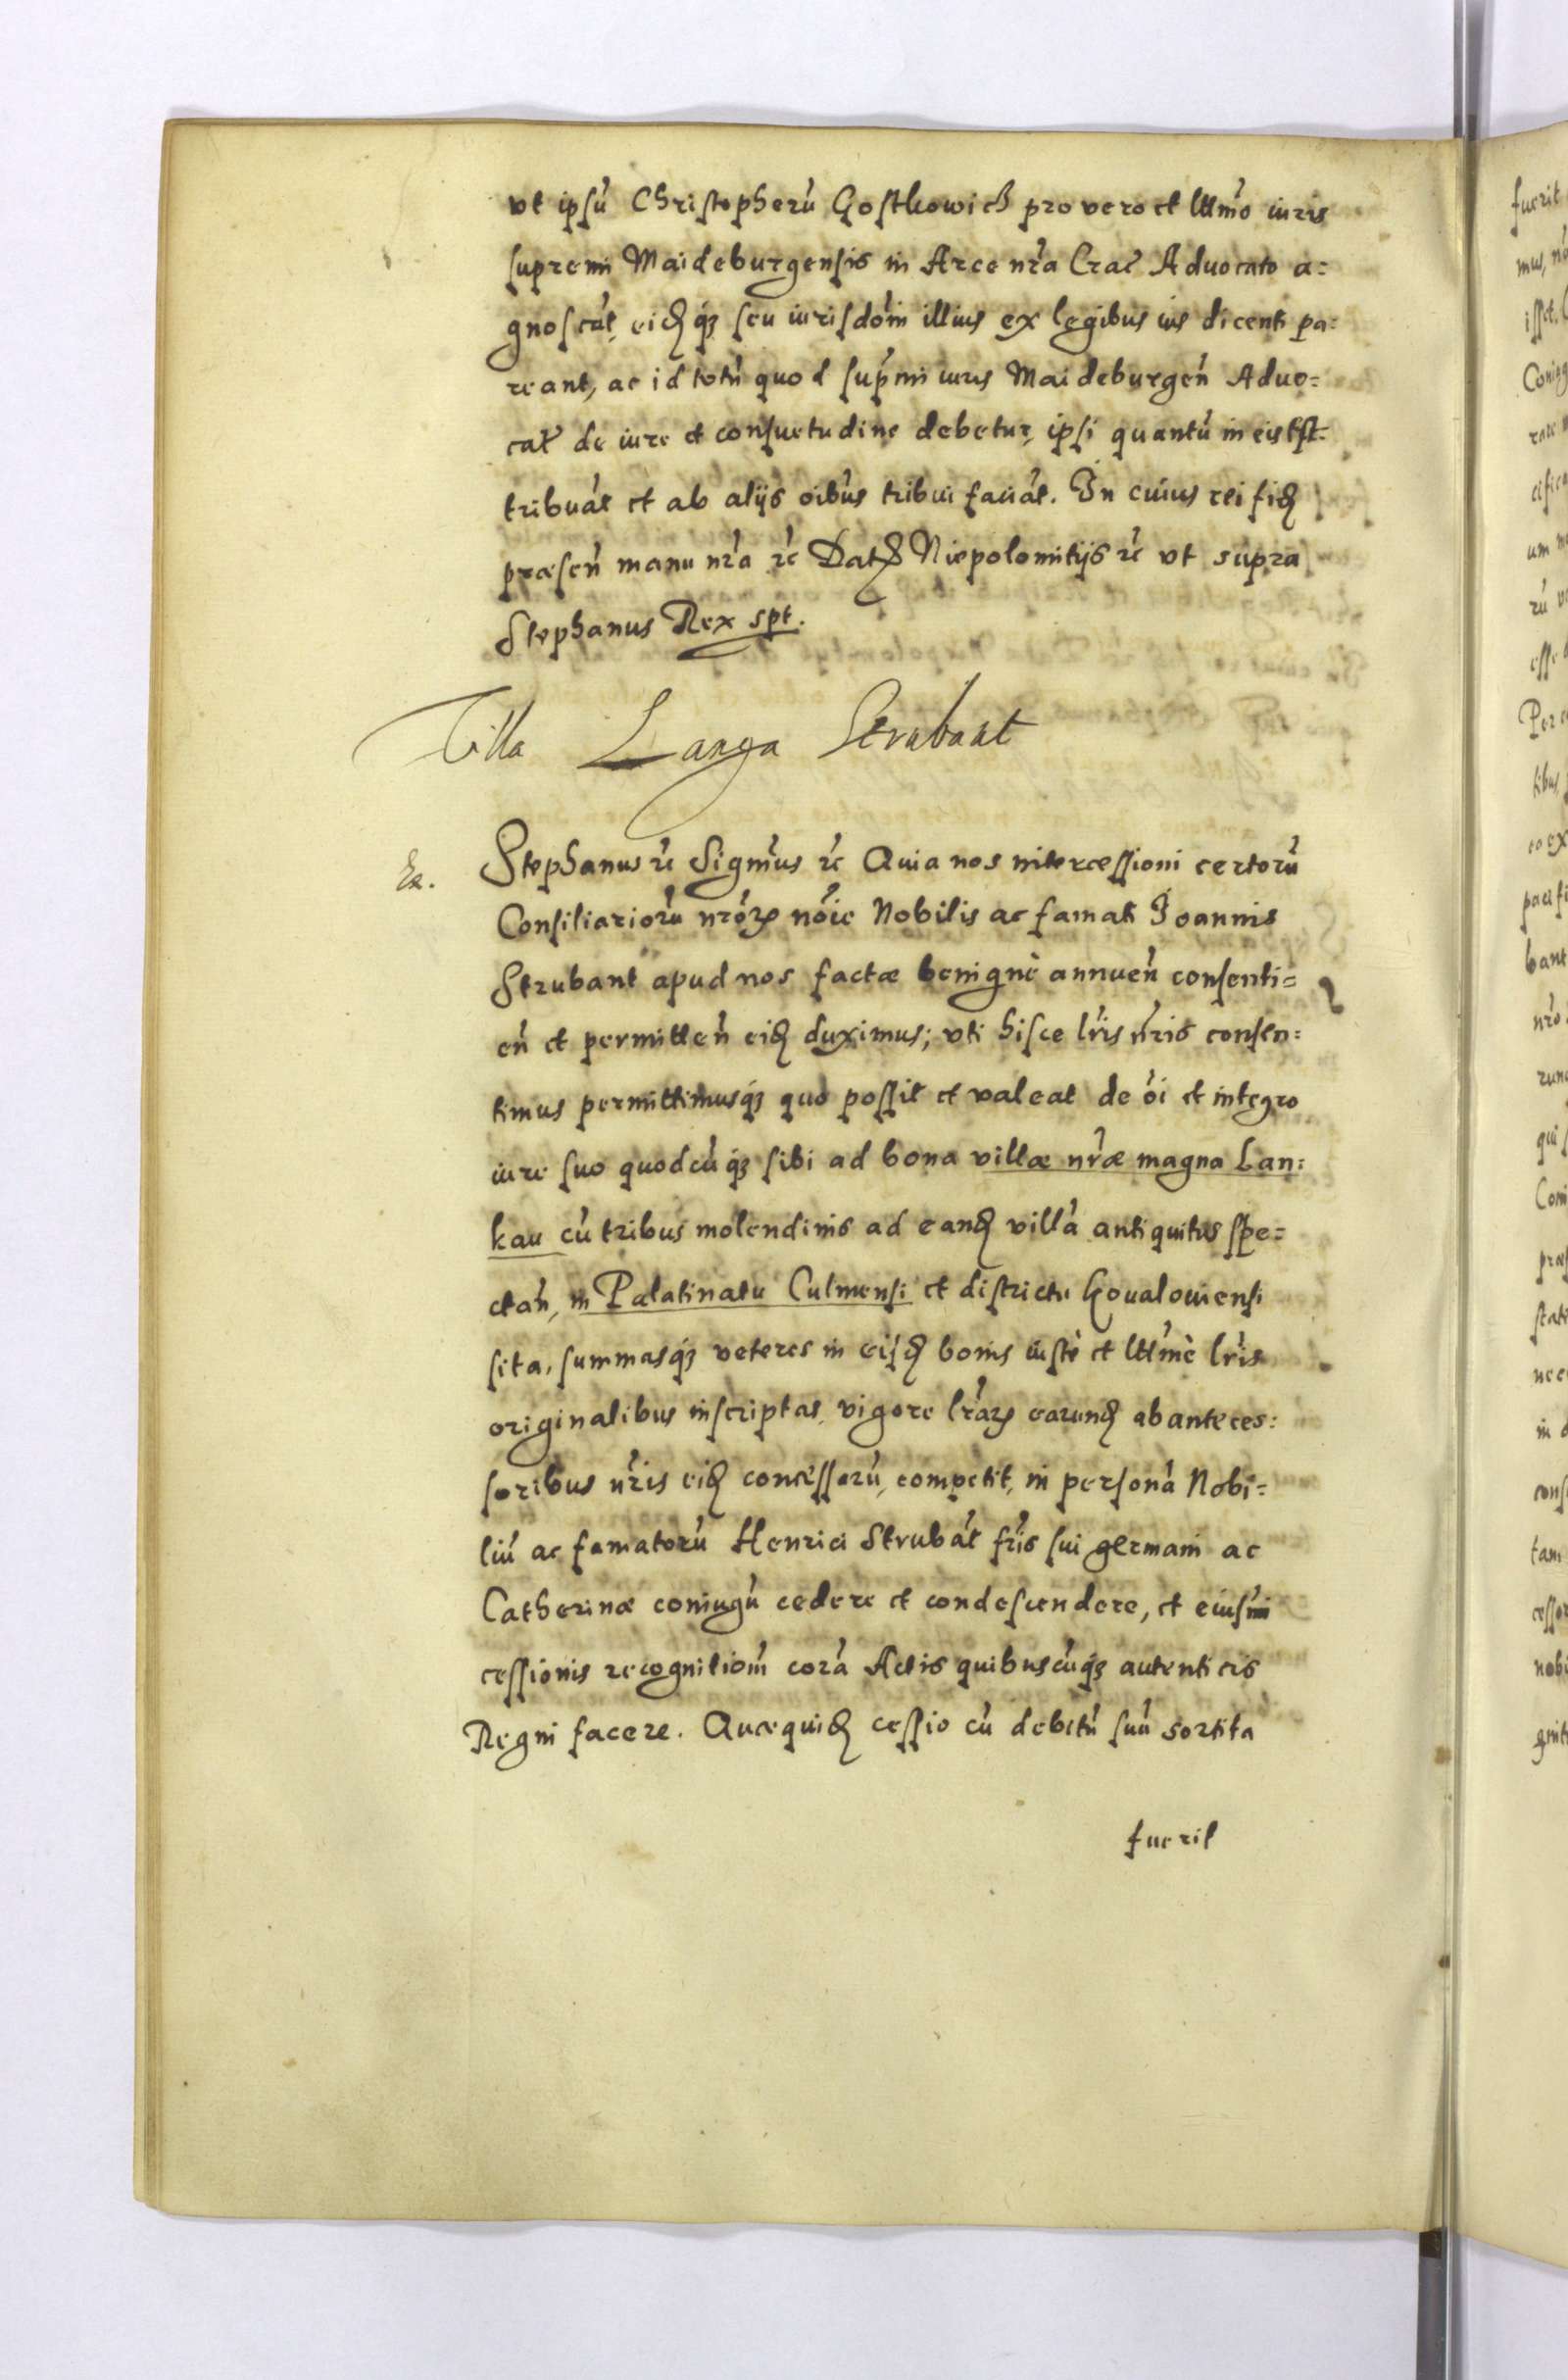 ut ipsũ Christopherũ Gostkowich pro vero et lttmo iuris
supremi Maideburgensis in Arce nr̃a Crac̃ Advocato a=
gnoscãt, eidꝫ seu iurisdõm illius ex legibus ius dicenti pa=
reant, ac id totũ quod supm̃i iuris Maideburgeñ Advo=
cat̃ de iure et consuetudine debetur, ipsi quantũ in eis est
tribuãt et ab alijs oĩbus tribui faciãt. In cuius rei fidẽ
præseñ manu nr̃a ꝛc̃ Datꝫ Niepolomitijs ꝛc̃ ut supra
Stephanus Rex spt.
Villa Langa Strubant
Ex.
Stephanus ꝛc̃ Signm̃us ꝛc̃ Quia nos intercessioni certorũ
Consiliariorũ nrõꝝ nõie Nobilis ac famati Joannis
Strubant apud nos factæ benignè annueñ consenti=
eñ et permitteñ eidꝫ duximus; uti hisce lr̃is nr̃is consen=
timus permittimusqꝫ quo possit et valeat de õi et integro
iure suo quodcũqꝫ sibi ad bona villæ nr̃æ magna Lan=
kau cũ tribus molendinis ad eandꝫ villã antiquitus spe=
ctañ, in Palatinatu Culmensi et districtu Koualouiensi
sita, summasqꝫ veteres in eisdꝫ bonis iustè et lttmè lr̃is
originalibus inscriptas, vigore lr̃aꝝ earundꝫ ab anteces=
soribus nr̃is eidꝫ concessarũ, competit, in personã Nobi=
liũ ac famatorũ Henrici Strubãt fr̃is sui germani ac
Catherinæ coniugũ cedere et condescendere, et eiusm̃i
cessionis recognitiom̃ corã Actis quibuscũqꝫ autenticis
Regni facere. Quæquidꝫ cessio cũ debitũ suũ sortita
fuerit